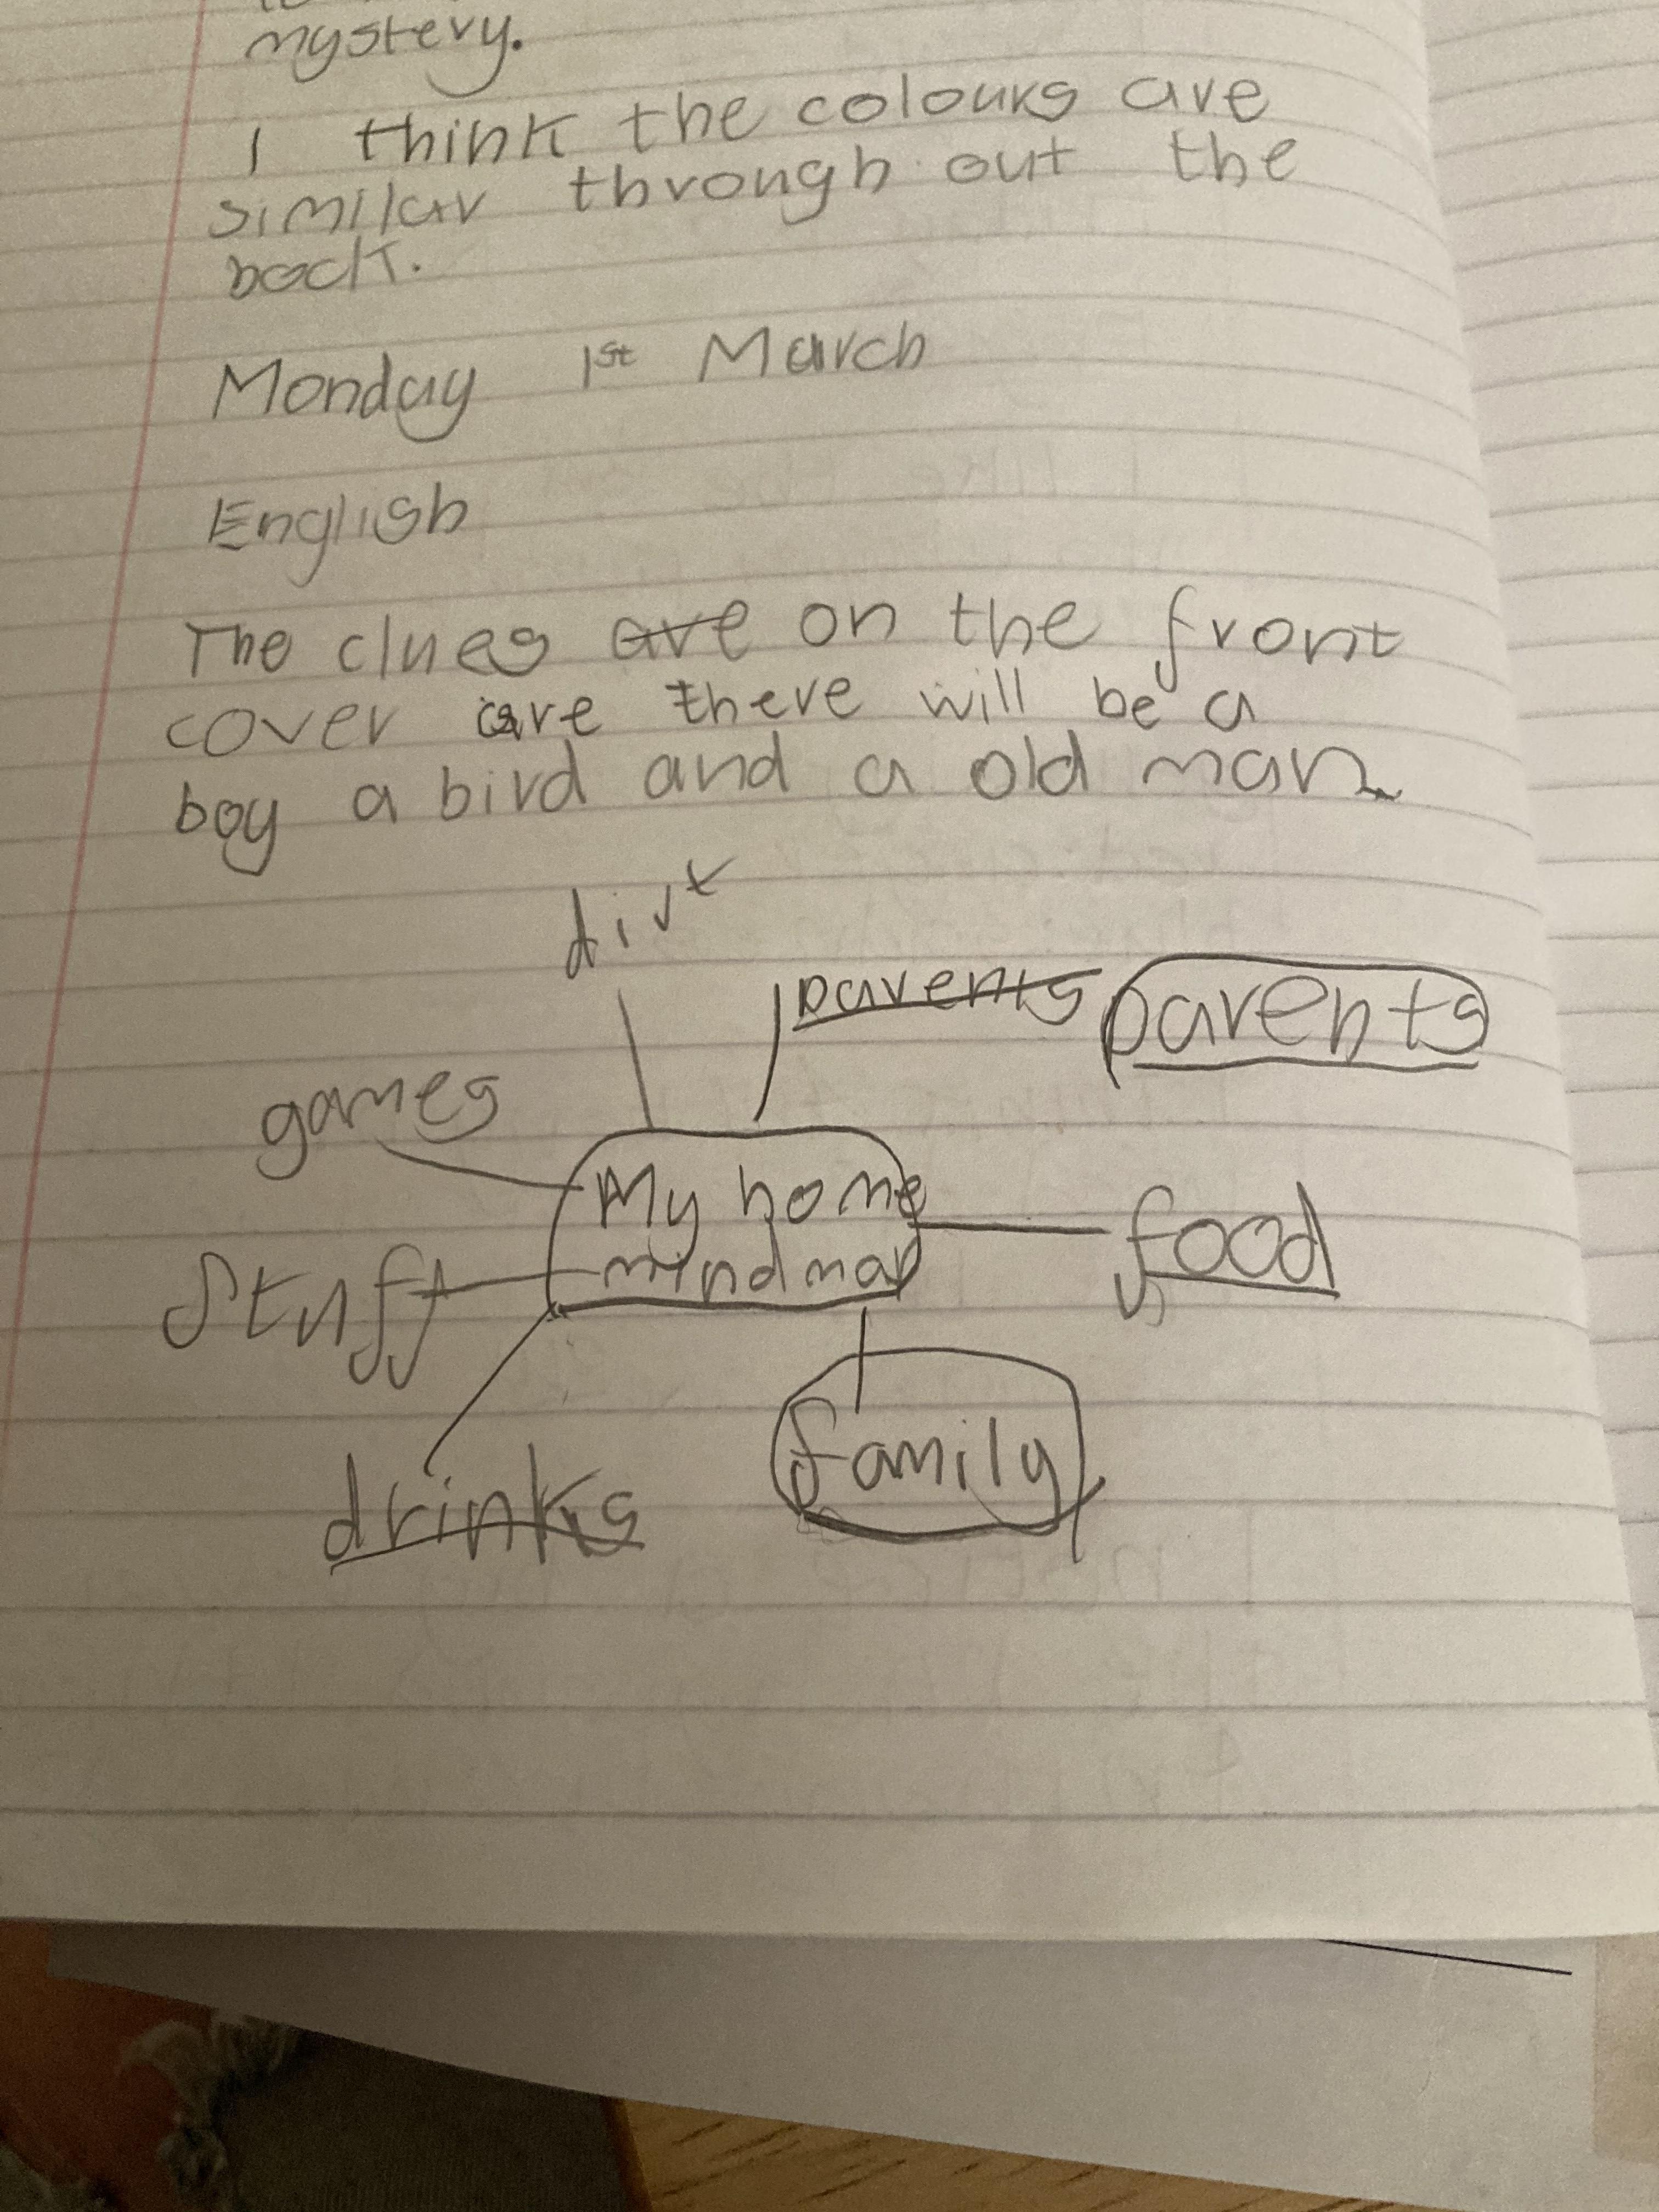 mystery.
I think the colours are
similar through out the
book.
Monday 1st March
English
The clues are on the front
cover are there will be a
boy a bird and a old man
dirt
parents parents
games
My home
mindmap
food
Stuff
family
drinks